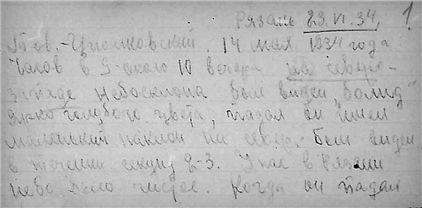 Рязань 23.VI.34. 1
Тов. Циолковский. 14 мая 1934 года
Часов в 9-около 10 вечера на северо-
западе небосклона был виден "болид"
ярко голубого цвета, падал он имел
маленький наклон на север. был виден
в течении секунд 2-3. У нас в Рязани
небо было чистое. Когда он падал